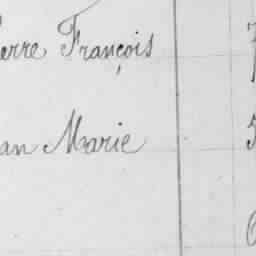 ierre François
an Marie